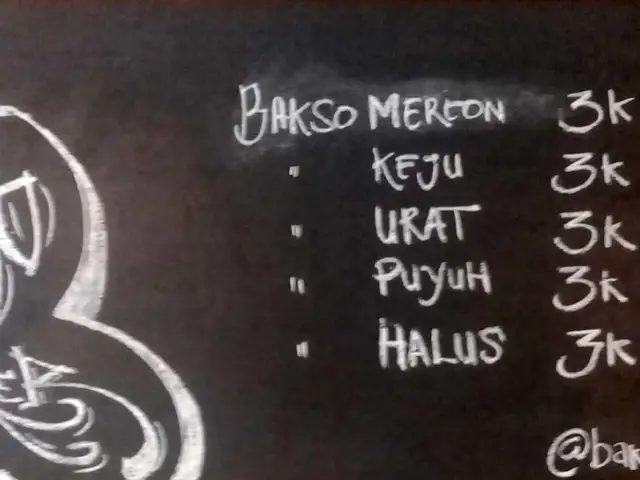 BAKSO MERCON 3K
" KEJU 3K
" URAT 3K
" PUYUH 3K
" HALUS 3K
@bak
ER